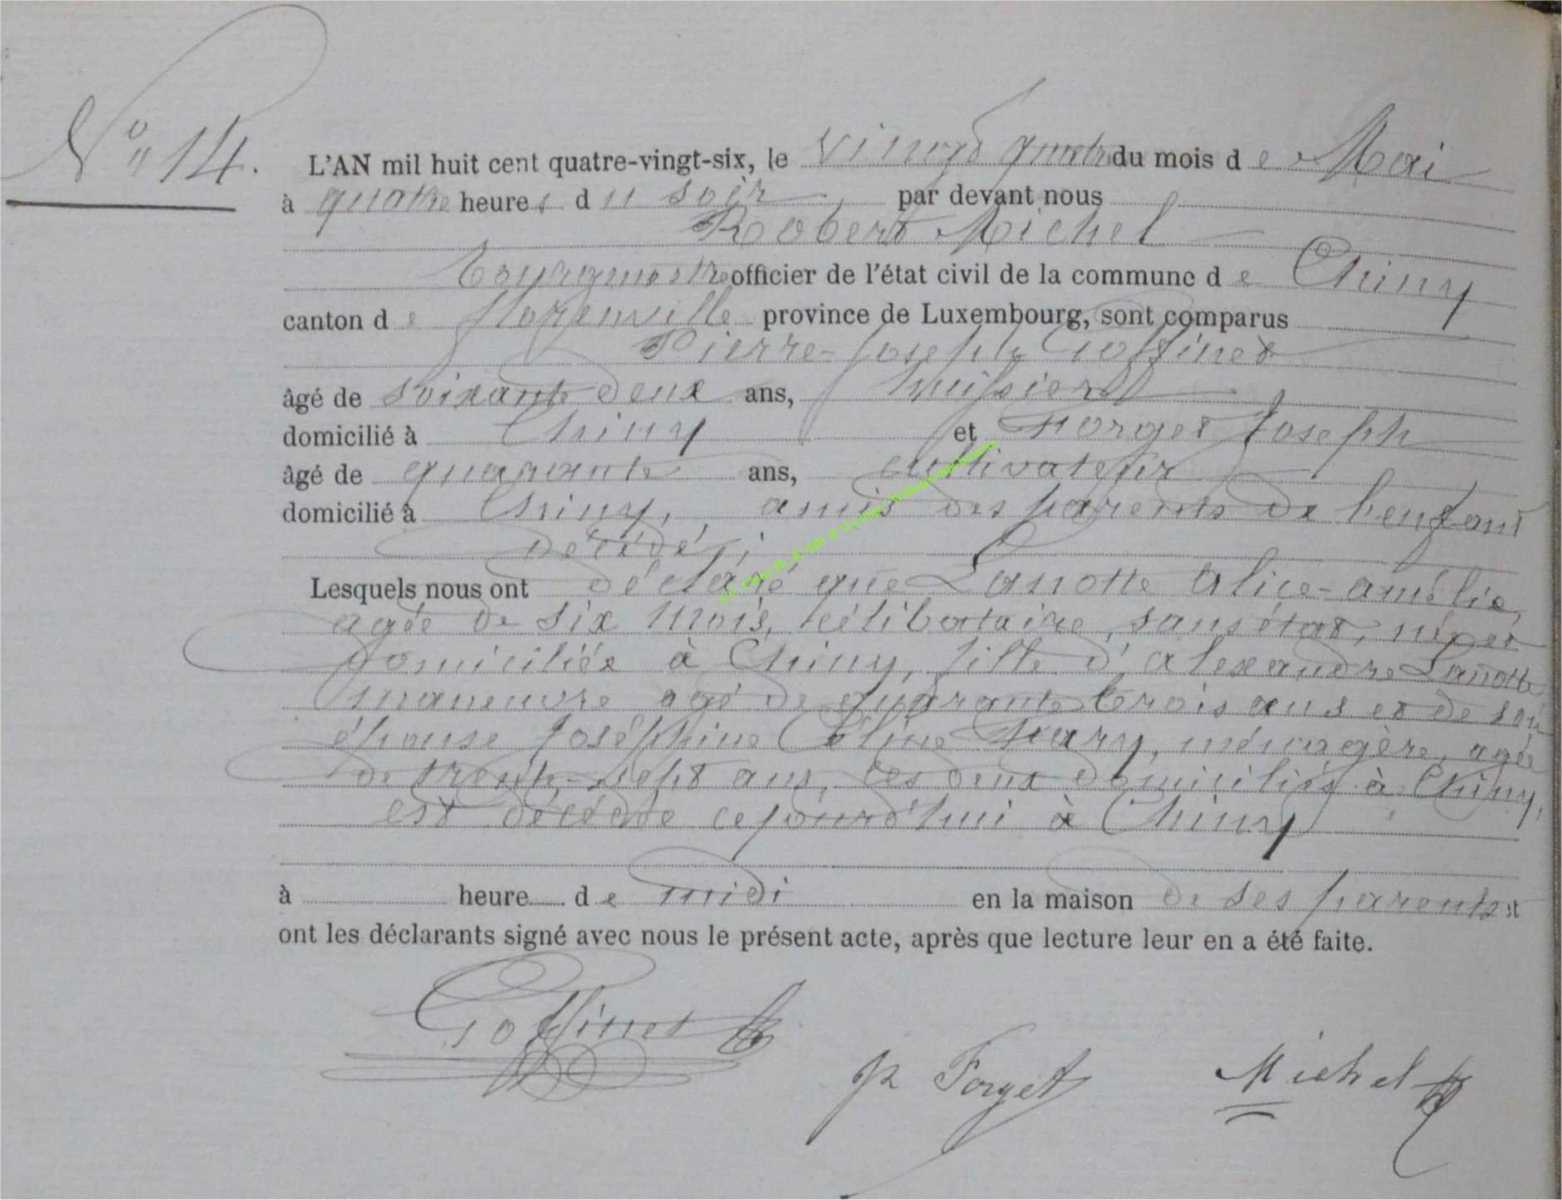 N° 14.
L'AN mil huit cent quatre-vingt-six, le vingt quatre du mois de Mai
à quatre heures du soir par devant nous
Robert Michel
bourgmestre officier de l'état civil de la commune de Chiny
canton de florenville province de Luxembourg, sont comparus
Pierre-Joseph Goffinet
âgé de soixante deux ans, huissier
domicilié à Chiny et Forget Joseph
âgé de quarante ans, cultivateur
domicilié à Chiny, amis des parents de l'enfant
décédé;
Lesquels nous ont déclaré que Lanotte Alice-amélie,
agée de six mois, célibataire, sans état, née et
domiciliée à Chiny, fille d'Alexandre Lanotte
manœuvre agé de quarante trois ans et de son
épouse Joséphine Céline, ménagère, agée
de trente-sept ans, les deux domiciliés à Chiny,
est décédée cejourd'hui à Chiny
à heure de midi en la maison de ses parents et
ont les déclarants signé avec nous le présent acte, après que lecture leur en a été faite.
Goffinet
Forget Michel